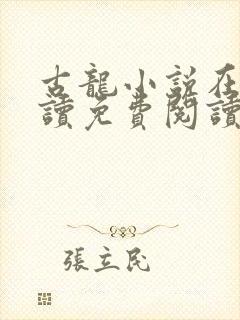 古龍小說在
讀免費閱讀
張立民